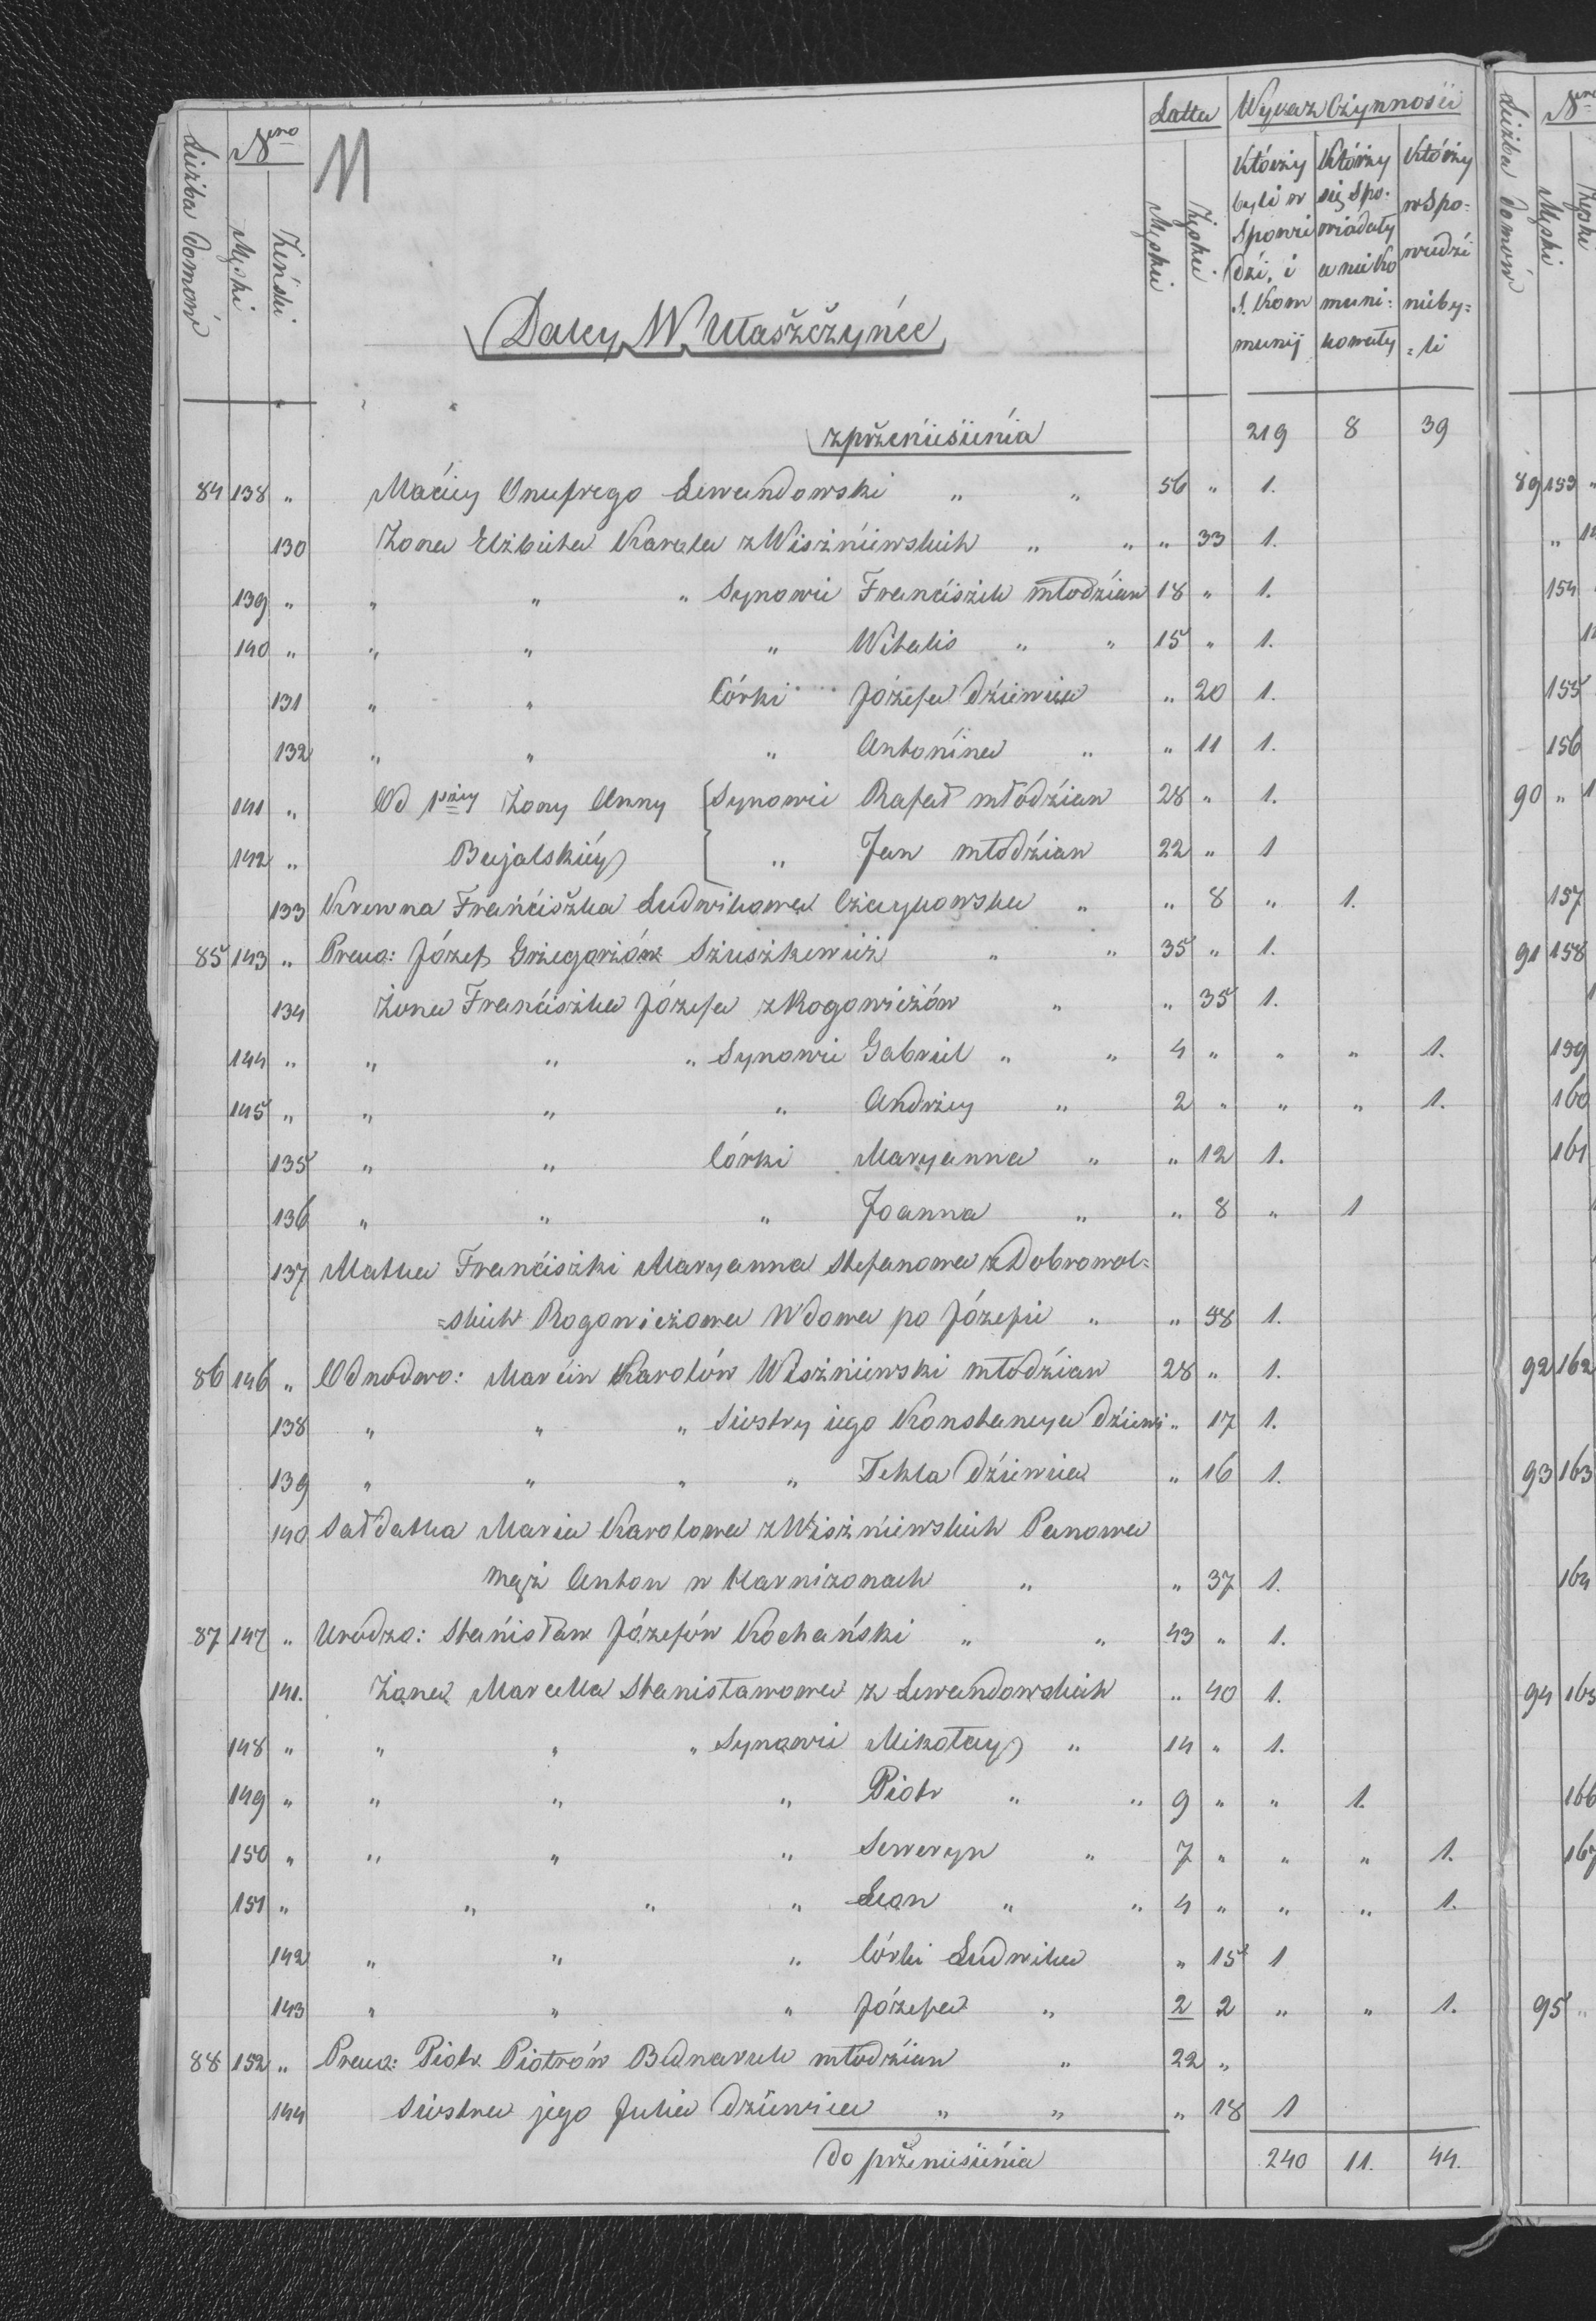 Liczba Domów Nero Męski Żeński M Latta Męskie Żeńskie Wykaz Czynności
Którzy byli w Spowiedzi, i S. Kommunij
Którzy się Spowiadały a nie Kommunikowały
Którzy w Spowiedzi nieby=li
Daley W Utaszczyńce
z przeniesienia 219 8 39
84 138 " Maciey Onufrego Lewandowski " " 56 " 1.
130 Żona Elżbieta Karola z Wiszniewskich " " " 33 1.
139 " " " " Synowie Franciszek młodzian 18 " 1.
140 " " " " Witalis " " 15 " 1.
131 " " Córki Józefa dziewica " 20 1.
132 " " " Antonina " " 11 1.
141 " Od 1szey Żony Anny Synowie Rafał młodzian 28 " 1.
142 " Bujalskiéy " Jan młodzian 22 " 1
133 Krewna Franciszka Ludwikowa Czaykowska " " 8 " 1.
85 143 " Praco: Józef Grzegorzów Szuszkewicz " " 35 " 1.
134 Żona Franciszka Józefa z Rogowiczów " " 35 1.
144 " " " " Synowie Gabriel " " 4 " " " 1.
145 " " " " Andrzey " 2 " " " 1.
135 " " Córki Maryanna " " 12 1.
136 " " " Joanna " " 8 " 1
137 Matka Franciszki Maryanna Stefanowa z Dobrowol=
=skich Rogowiczowa Wdowa po Józefie " " 58 1.
86 146 " Odnodwo: Marcin Karolów Wiszniewski młodzian 28 " 1.
138 " " " Siostry iego Konstancya dziewi " 17 1.
139 " " " " Tekla dziewica " 16 1.
140 Sałdatka Maria Karolowa z Wiszniewskich Panowa
mąż Anton w Harnizonach " " 37 1.
87 147 " Urodzo: Stanisław Józefów Kochański " " 43 " 1.
141. Żona Marcella Stanisławowa z Lewandowskich " 40 1.
148 " " " " Synowie Mikołay " 14 " 1.
149 " " " " Piotr " " 9 " " 1.
150 " " " " Seweryn " 7 " " " 1.
151 " " " " Leon " " 4 " " " 1.
142 " " " Córki Ludwika " 15 1
143 " " " Józefa " 2 2 " " 1.
88 152 " Praco: Piotr Piotrów Bednaruk młodzian " 22 "
144 Siostra jego Julia dziewica " " " 18 1
do przeniesienia 240 11. 44.
Liczba Domów Nero Męski Żęski
89 153 "
154
155
156
90 "
157
91 158
159
160
161
92 162
93 163
164
94 165
166
167
95 "